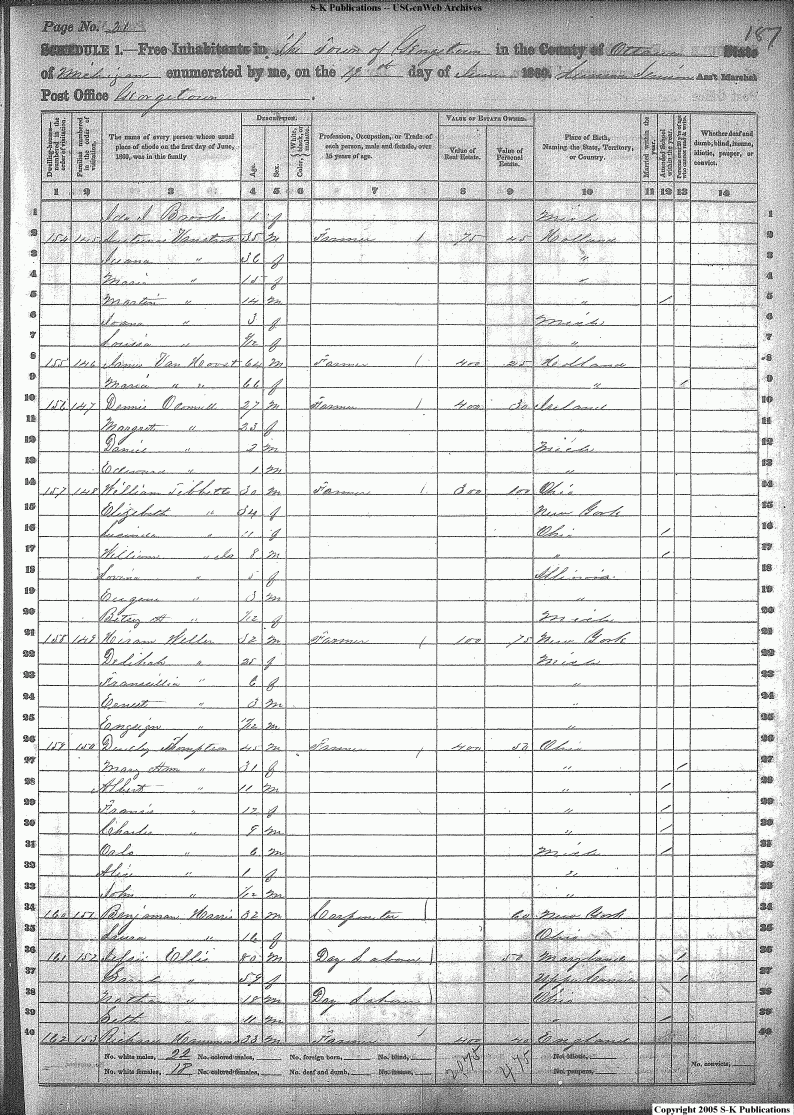 S-K Publications -- USGenWeb Archives
Page No. 21
187
SCHEDULE 1.—Free Inhabitants in The Town of Georgetown in the County of Ottawa State
of Michigan enumerated by me, on the day of June 1860. Ass't Marshal
Post Office Georgetown
DESCRIPTION. VALUE OF ESTATE OWNED.
Dwelling-houses—numbered in the order of visitation. Families numbered in the order of visitation. The name of every person whose usual place of abode on the first day of June, 1860, was in this family Age. Sex. Color, White, black, or mulatto. Profession, Occupation, or Trade of each person, male and female, over 15 years of age. Value of Real Estate. Value of Personal Estate. Place of Birth, Naming the State, Territory, or Country. Married within the year. Attended School within the year. Persons over 20 y'rs of age who cannot read & write. Whether deaf and dumb, blind, insane, idiotic, pauper, or convict.
1 2 3 4 5 6 7 8 9 10 11 12 13 14
1 Brooks 1 f Mich 1
2 154 145 35 m Farmer 1 75 45 Holland 2
3 " 36 f " 3
4 Maria " 15 f " 4
5 Martin " 14 m " / 5
6 Joana " 3 f Mich 6
7 Louisa " /12 f " 7
8 155 146 Van 64 m Farmer 1 400 25 Holland 8
9 Maria " " 66 f " / 9
10 156 147 Dennis 27 m Farmer 1 400 30 Ireland 10
11 Margaret " 23 f " 11
12 Daniel " 2 m Mich 12
13 Edward " 1 m " 13
14 157 148 William Tibbetts 30 m Farmer 1 300 100 Ohio 14
15 Elizabeth " 34 f New York 15
16 Lucinda " 11 f Ohio / 16
17 William " Jr 8 m " / 17
18 " 5 f Illinois 18
19 Eugene " 3 m " 19
20 Betsy " /12 f Mich 20
21 158 149 Hiram Weller 32 m Farmer 1 100 75 New York 21
22 Delilah " 25 f Mich 22
23 " 6 f " 23
24 Ernest " 3 m " 24
25 Ensign " /12 m " 25
26 159 150 45 m Farmer 1 400 50 Ohio 26
27 Mary Ann " 31 f " / 27
28 Albert " 11 m " / 28
29 Francis " 12 f " / 29
30 Charles " 9 m " / 30
31 " 6 m Mich / 31
32 Alice " 1 f " 32
33 John " /12 m " 33
34 160 151 Benjaman Harris 32 m Carpenter 1 60 New York 34
35 Laura " 16 f Ohio 35
36 161 152 Ellis 80 m Day Labour 1 50 Maryland / 36
37 Sarah " 59 f Upper Canada / 37
38 Nathan " 18 m Day Labour 1 Ohio 38
39 " 11 m " / 39
40 162 153 Richard 33 m Farmer 1 400 40 England 40
No. white males, 22 No. colored males, No. foreign born, No. blind, 2075 475 No. idiotic,
No. white females, 18 No. colored females, No. deaf and dumb, No. insane, No. paupers, No. convicts,
Copyright 2005 S-K Publications